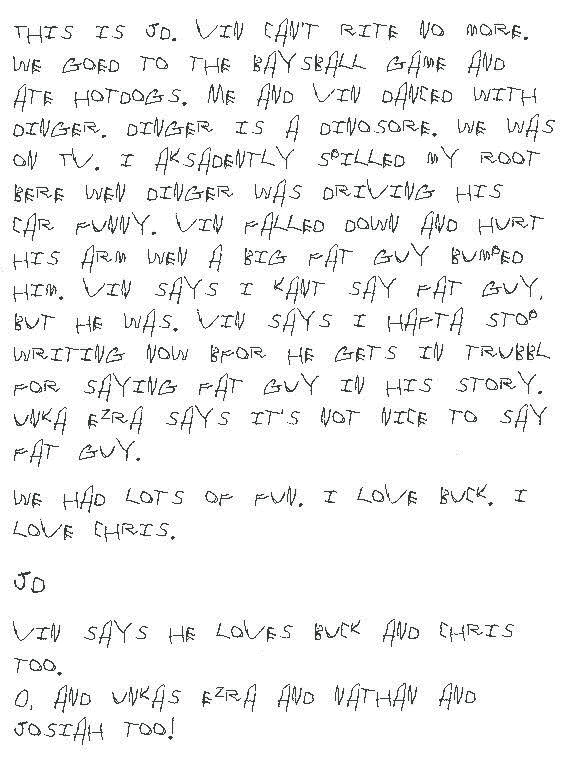 THIS IS JD. VIN CAN'T RITE NO MORE.
WE GOED TO THE BAYSBALL GAME AND
ATE HOTDOGS. ME AND VIN DANCED WITH
DINGER. DINGER IS A DINOSORE. WE WAS
ON TV. I AKSADENTLY SPILLED MY ROOT
BERE WEN DINGER WAS DRIVING HIS
CAR FUNNY. VIN FALLED DOWN AND HURT
HIS ARM WEN A BIG FAT GUY BUMPED
HIM. VIN SAYS I KANT SAY FAT GUY,
BUT HE WAS. VIN SAYS I HAFTA STOP
WRITING NOW BFOR HE GETS IN TRUBBL
FOR SAYING FAT GUY IN HIS STORY.
UNKA EZRA SAYS IT'S NOT NICE TO SAY
FAT GUY.
WE HAD LOTS OF FUN. I LOVE BUCK. I
LOVE CHRIS.
JD
VIN SAYS HE LOVES BUCK AND CHRIS
TOO.
O, AND UNKAS EZRA AND NATHAN AND
JOSIAH TOO!